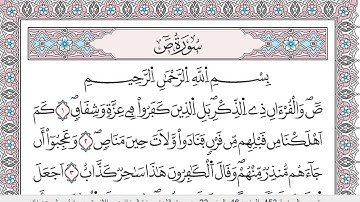 سُورَةُ صٓ
بِسْمِ ٱللَّهِ ٱلرَّحْمَٰنِ ٱلرَّحِيمِ
صٓ وَٱلْقُرْءَانِ ذِى ٱلذِّكْرِ ١ بَلِ ٱلَّذِينَ كَفَرُوا۟ فِى عِزَّةٍ وَشِقَاقٍ ٢ كَمْ
أَهْلَكْنَا مِن قَبْلِهِم مِّن قَرْنٍ فَنَادَوا۟ وَّلَاتَ حِينَ مَنَاصٍ ٣ وَعَجِبُوٓا۟ أَن
جَآءَهُم مُّنذِرٌ مِّنْهُمْ وَقَالَ ٱلْكَٰفِرُونَ هَٰذَا سَٰحِرٌ كَذَّابٌ ٤ أَجَعَلَ